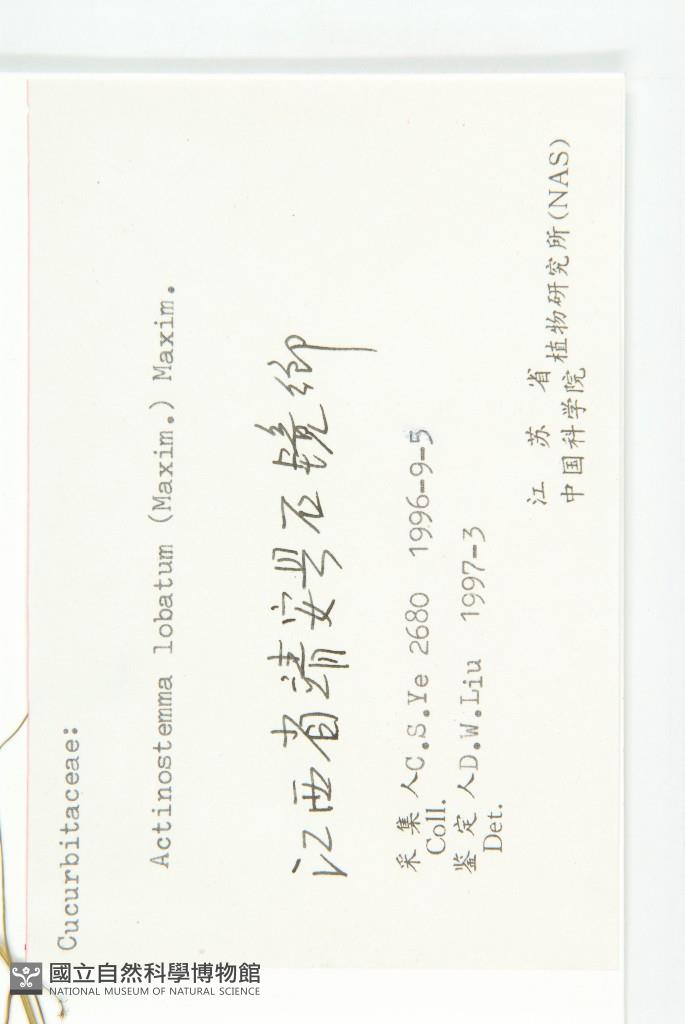 Cucurbitaceae:
Actinostemma lobatum (Maxim.) Maxim.
江西省靖安县石镜鄉
采集人C.S.Ye 2680 1996-9-5
Coll.
鉴定人D.W.Liu 1997-3
Det.
江苏省
中国科学院植物研究所(NAS)
國立自然科學博物館
NATIONAL MUSEUM OF NATURAL SCIENCE